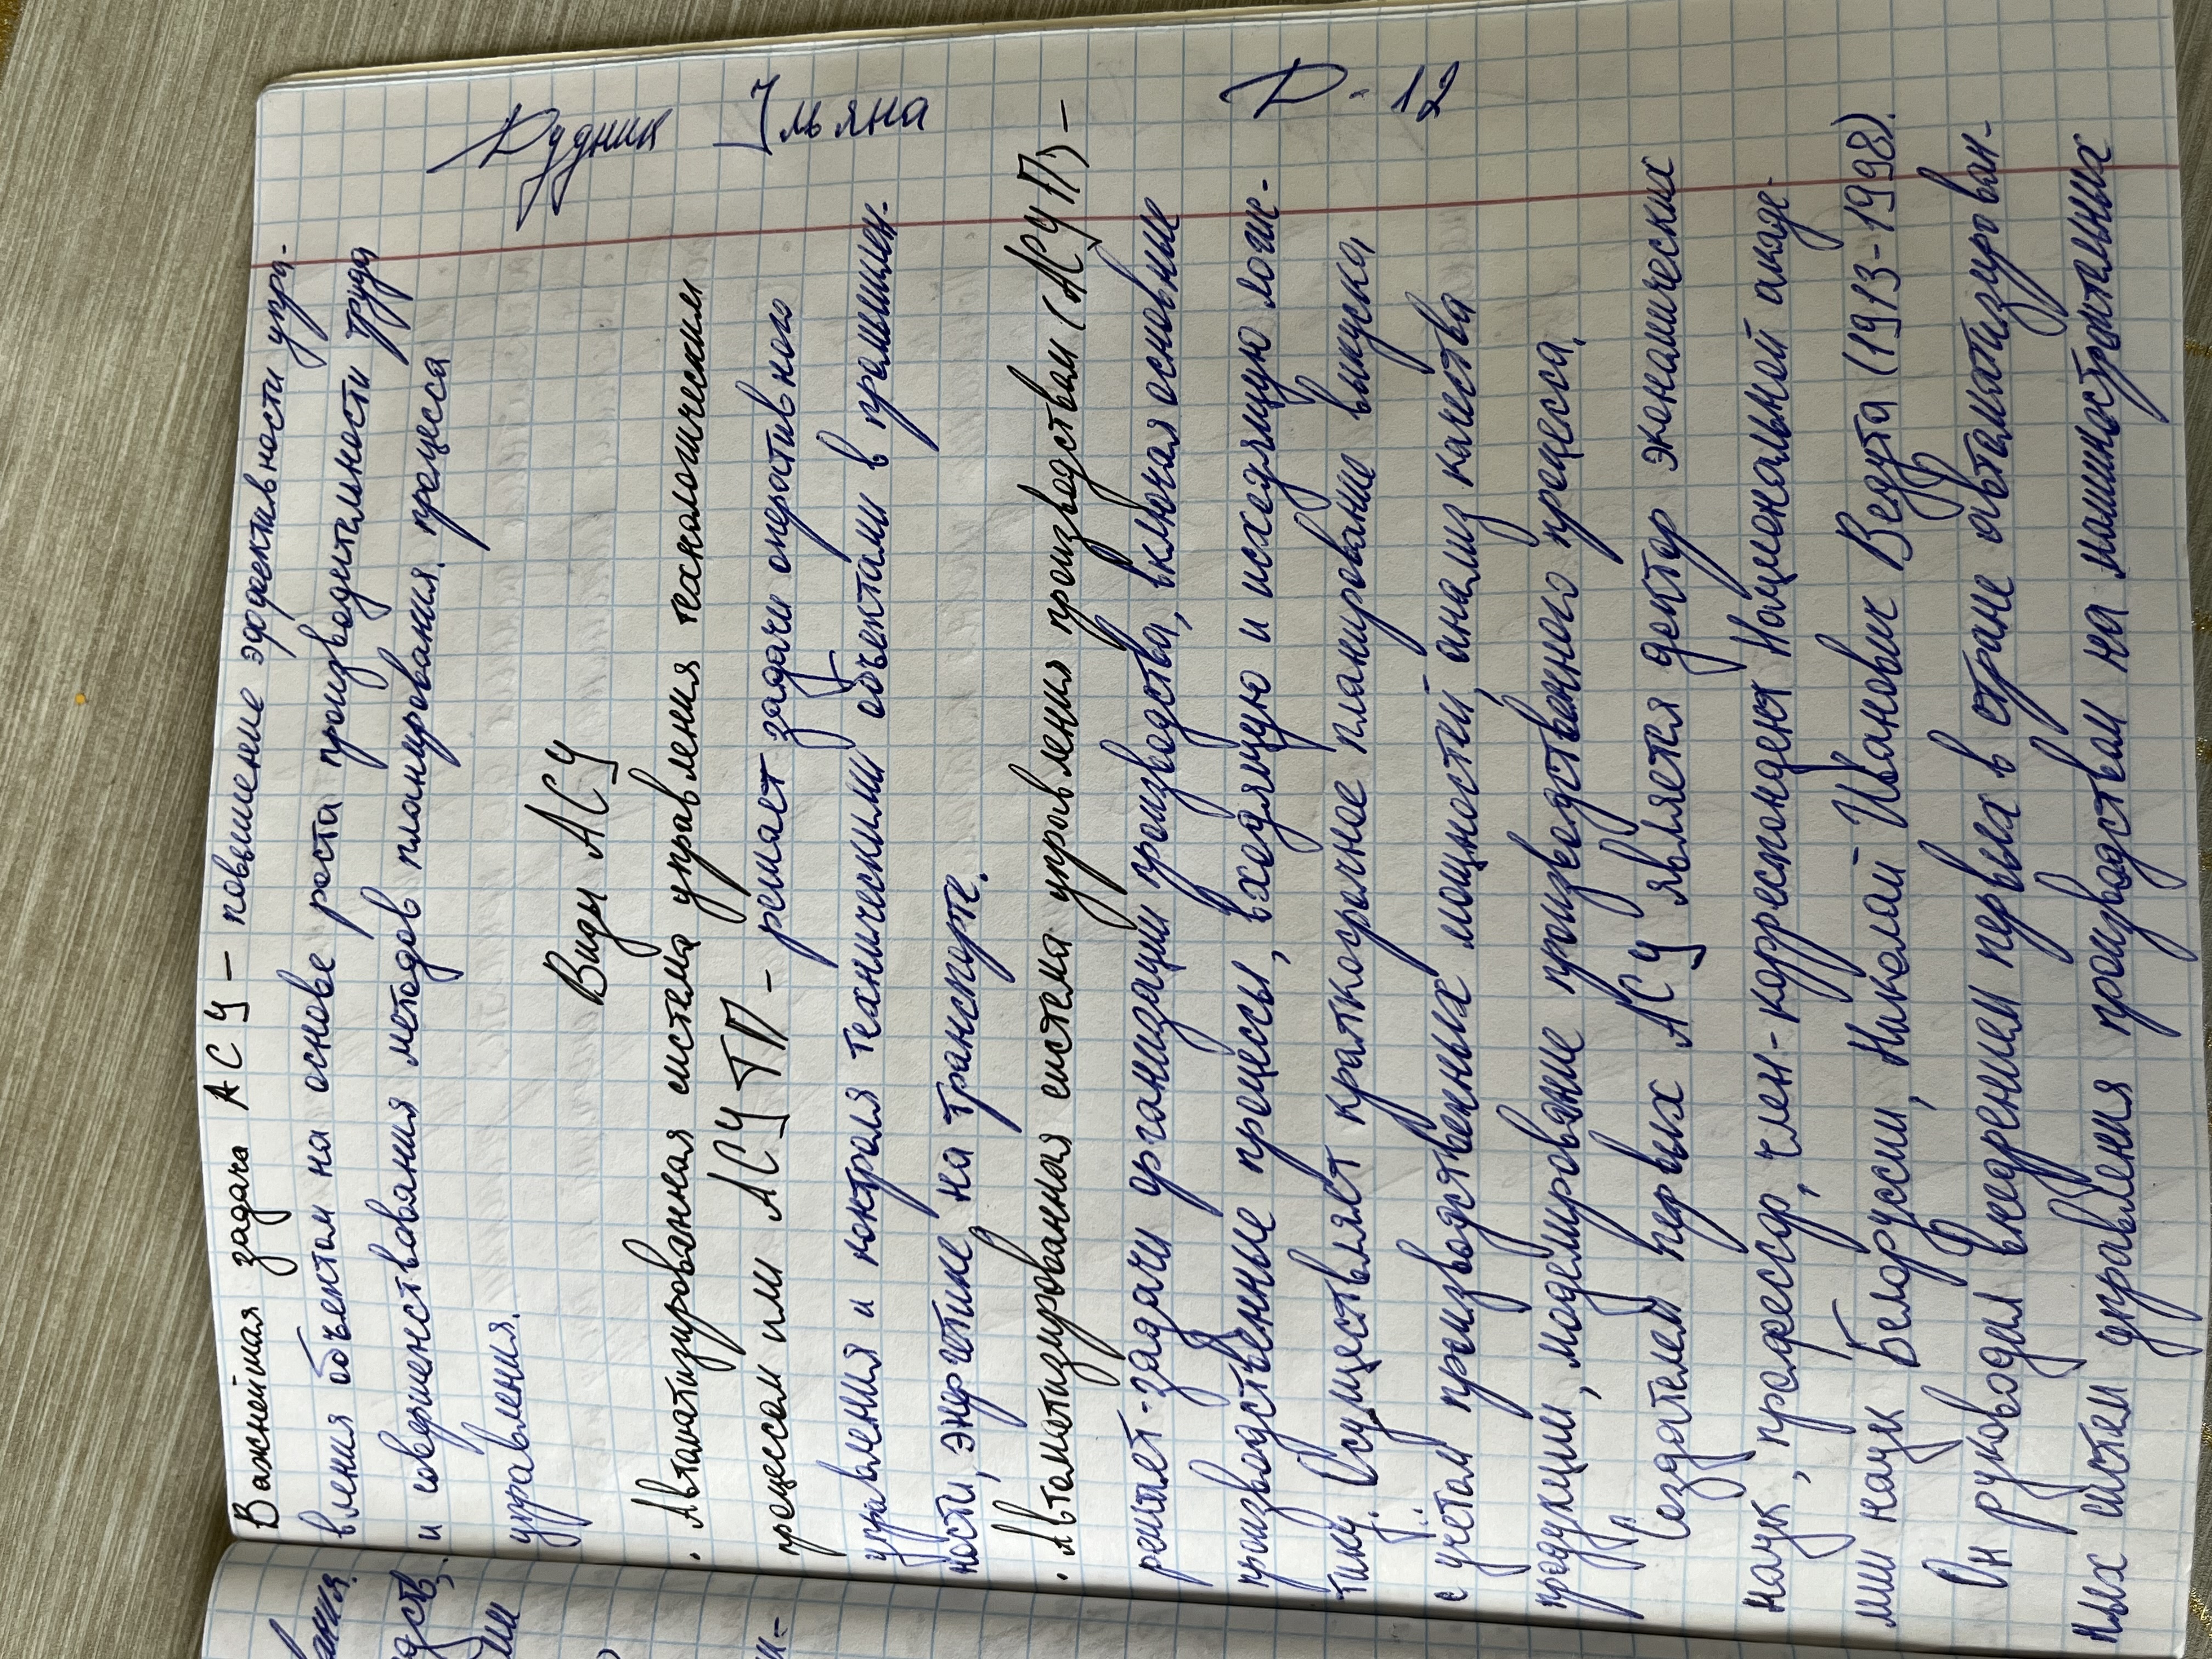 Важнейшая задача АСУ – повышение эффективности упра-
вления объектом на основе роста производительности труда
и совершенствования методов планирования процесса
управления.
Дудник Ульяна
Д-12
Виды АСУ
· Автоматизированная система управления технологическим
процессом или АСУ ТП – решает задачи оперативного
управления и контроля техническими объектами в промышлен-
ности, энергетике, на транспорте.
· Автоматизированная система управления производством (АСУ П) –
решает задачи организации производства, включая основные
производственные процессы, входящую и исходящую логис-
тику. Осуществляет краткосрочное планирование выпуска
с учётом производственных мощностей, анализ качества
продукции, моделирование производственного процесса.
Создателем первых АСУ является доктор экономических
наук, профессор, член-корреспондент Национальной акаде-
мии наук Белоруссии, Николай Иванович Ведута (1913-1998).
Он руководил внедрением первых в стране автоматизирован-
ных систем управления производством на машиностроительных
вания.